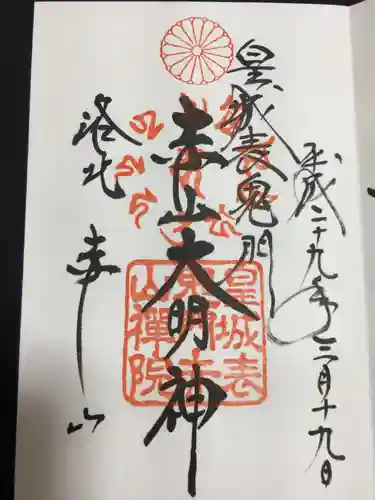 平成二十九年三月十九日
皇城表鬼門
赤山大明神
洛北 赤山
皇城表
山禅院